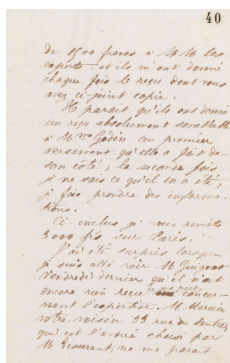 40
de 1500 francs à M.M. les
experts et ils m'ont donné
chaque fois le reçu dont vous
avez ci-joint copie.
Il paraît qu'ils ont donné
un reçu absolument semblable
à Mme Godin au premier
versement qu'elle a fait de
son côté; la seconde fois
je ne sais ce qu'il en a été,
je fais prendre des informa-
tions.
Ci-inclus je vous remets
3000 frs sur Paris.
J'ai été surpris lorsque
je suis allé voir M.
Vendredi dernier qu'il n'ait
encore rien reçu concer-
nant l'expertise. M. Mercier
votre voisin 33 rue du Sentier
qui est l'avoué choisi par
M. Tisserant, ne me paraît